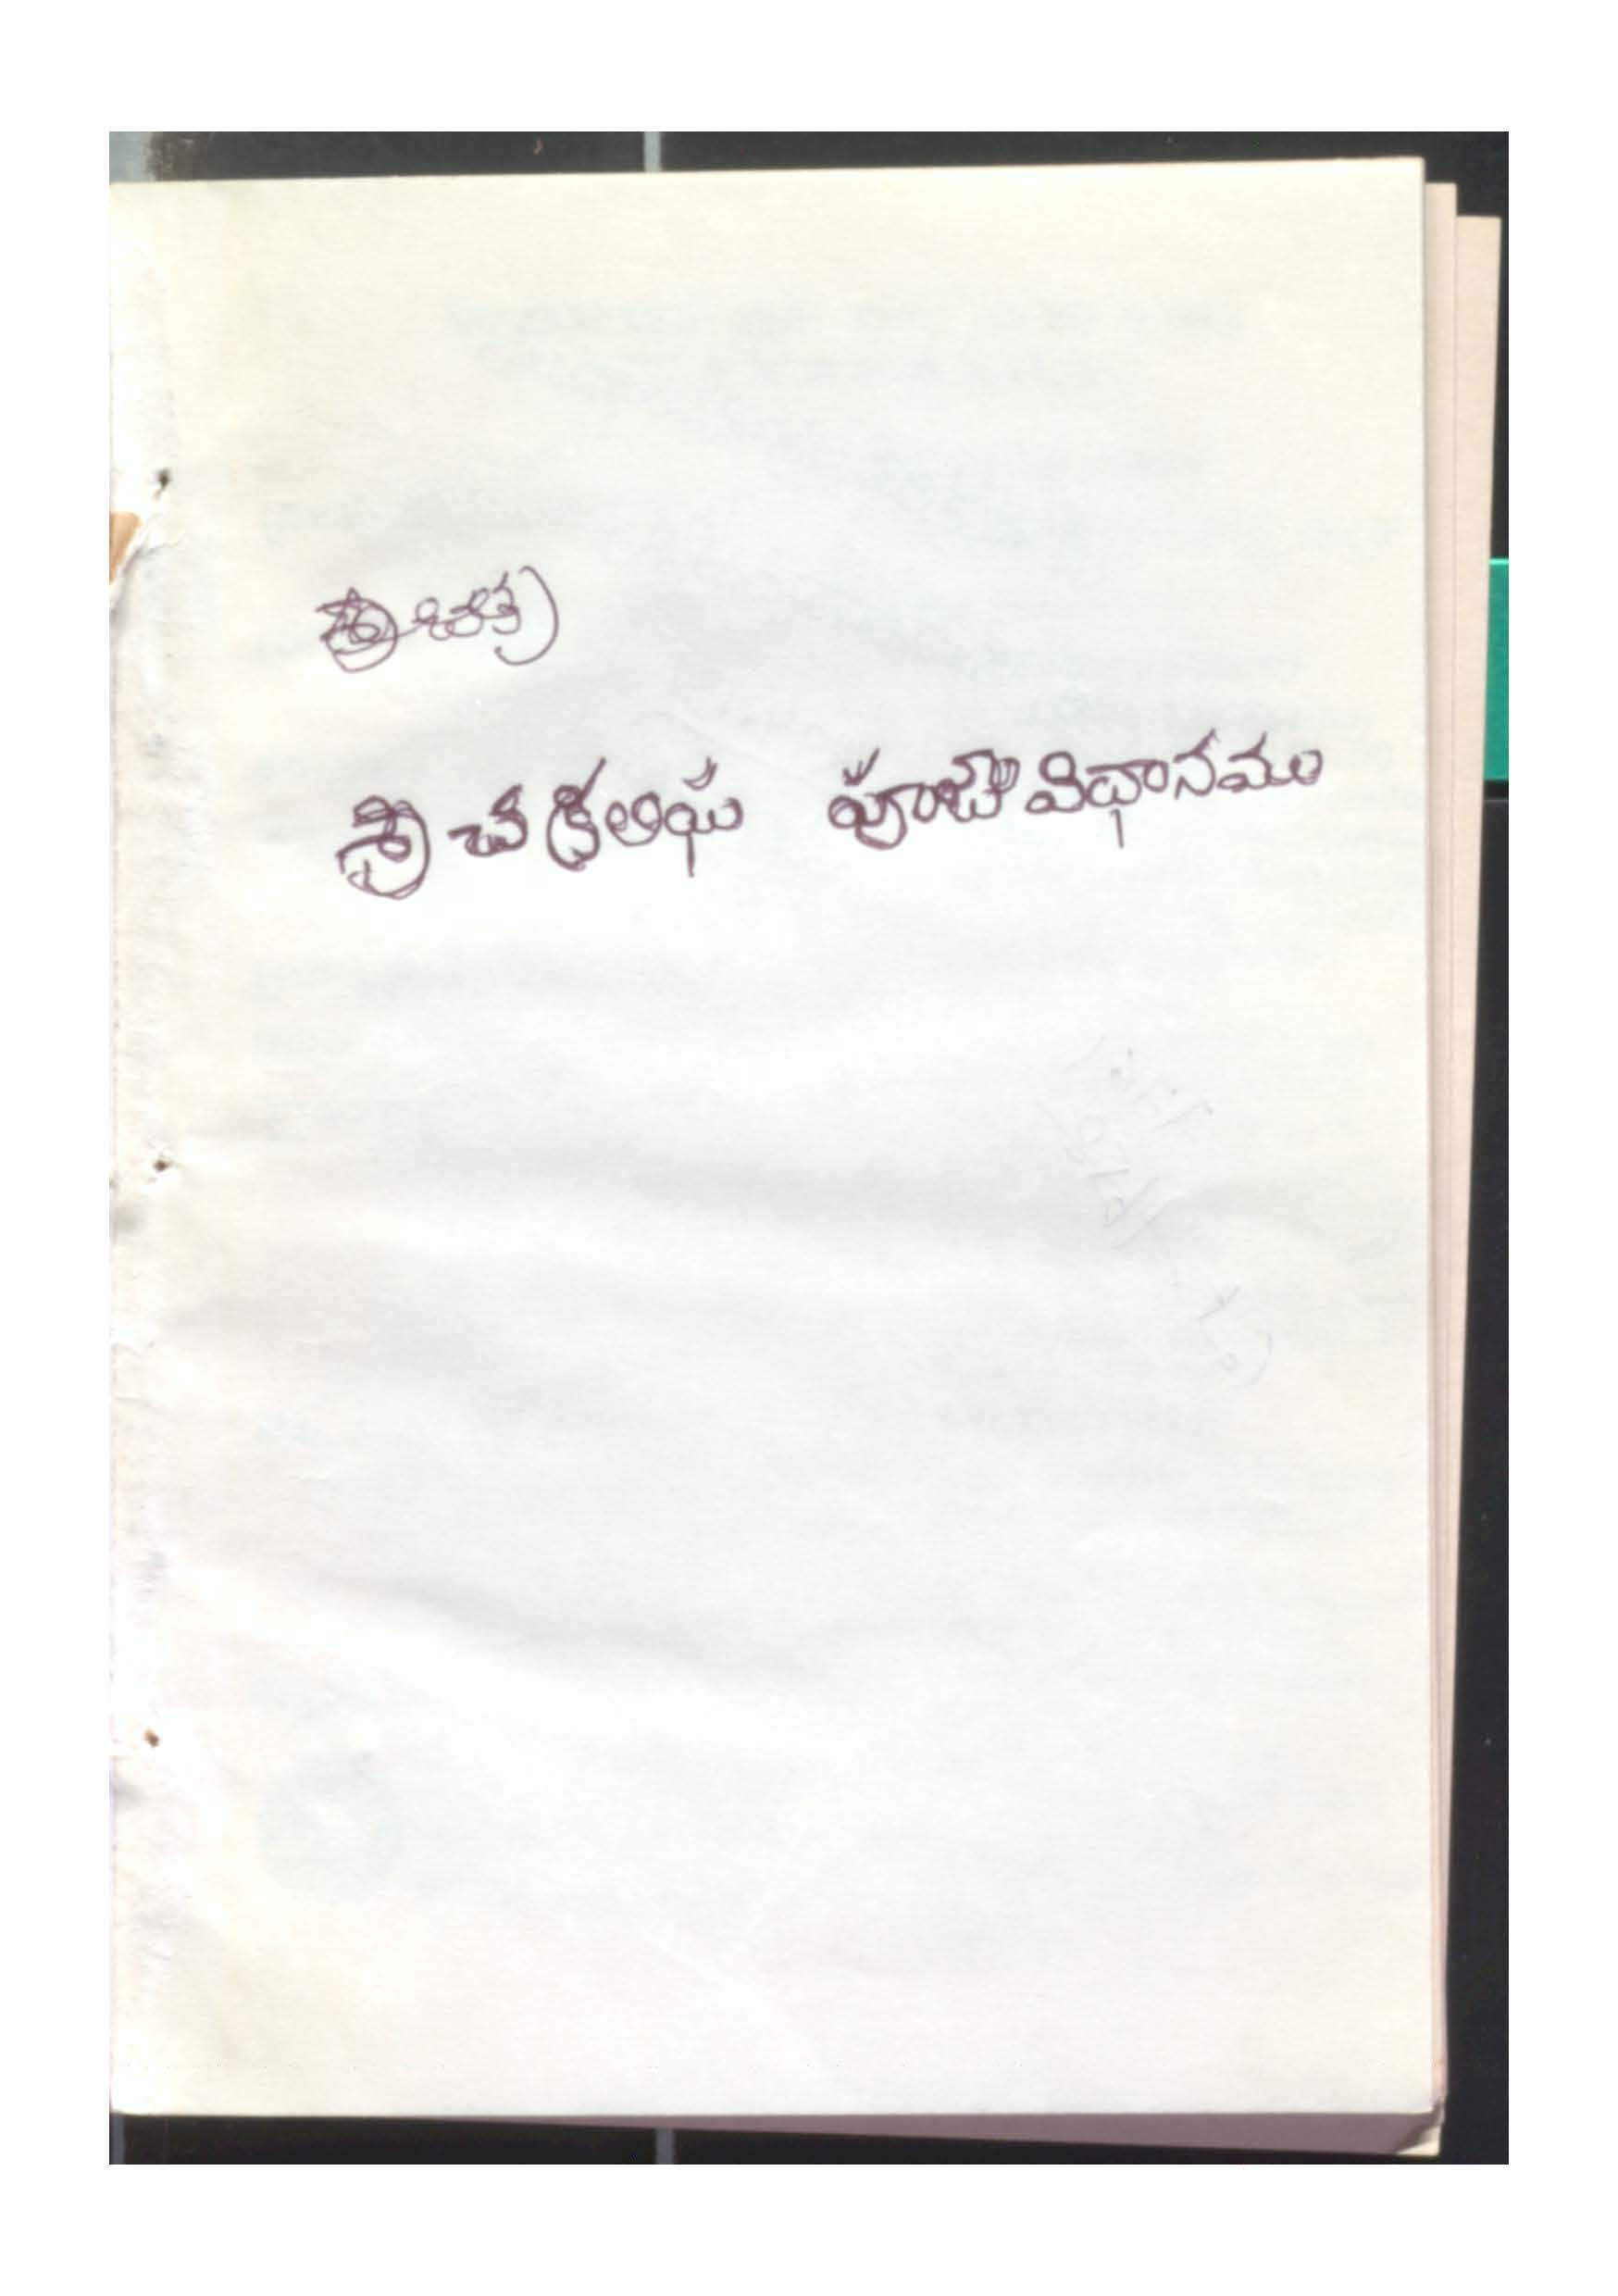 శ్రీ చక్ర
శ్రీ చక్రలఘు పూజావిధానము